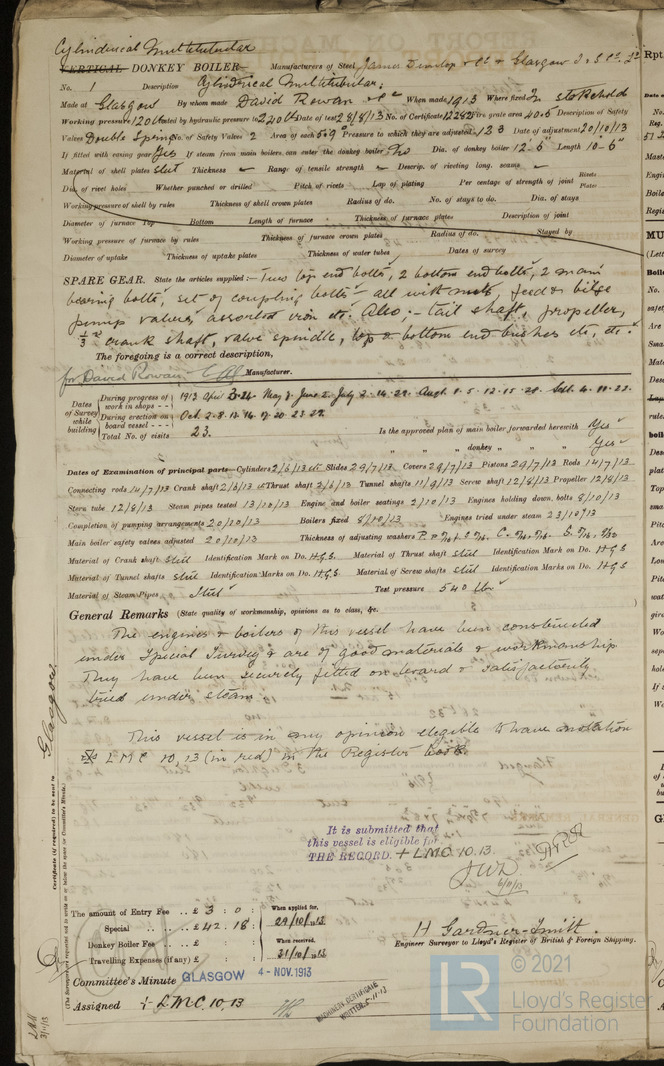 Cylindrical Multitubular
VERTICAL DONKEY BOILER— Manufacturers of Steel James Dunlop & Co & Glasgow I. & S. Co. Ld
No. 1 Description Cylindrical Multitubular.
Made at Glasgow By whom made David Rowan & Co When made 1913 Where fixed In stokehold
Working pressure 120 lbs tested by hydraulic pressure to 240 lbs Date of test 28/8/13 No. of Certificate 12282 Fire grate area 40.5 Description of Safety
Valves Double Spring No. of Safety Valves 2 Area of each 5.9 Pressure to which they are adjusted 123 Date of adjustment 20/10/13
If fitted with easing gear Yes If steam from main boilers can enter the donkey boiler No Dia. of donkey boiler 12-6" Length 10-6"
Material of shell plates Steel Thickness Range of tensile strength Descrip. of riveting long. seams
Dia. of rivet holes Whether punched or drilled Pitch of rivets Lap of plating Per centage of strength of joint Rivets Plates
Working pressure of shell by rules Thickness of shell crown plates Radius of do. No. of stays to do. Dia. of stays
Diameter of furnace Top Bottom Length of furnace Thickness of furnace plates Description of joint
Working pressure of furnace by rules Thickness of furnace crown plates Radius of do. Stayed by
Diameter of uptake Thickness of uptake plates Thickness of water tubes Dates of survey
SPARE GEAR. State the articles supplied:— Two top end bolts, 2 bottom end bolts, 2 main
bearing bolts, set of coupling bolts all with nuts feed & bilge
pump valves, assorted iron etc. Also:— tail shaft, propeller,
1/3 crank shaft, valve spindle, top & bottom end bushes etc, etc.
The foregoing is a correct description,
for David Rowan & Co Manufacturer.
Dates of Survey while building
During progress of work in shops - - 1913 Apr 3. 24. May 9. June 2. July 2. 14. 29. Aug. 1. 5. 12. 15. 28. Sept. 4. 11. 23.
During erection on board vessel - - - Oct. 2. 8. 13. 14. 17. 20. 23. 29.
Total No. of visits 23. Is the approved plan of main boiler forwarded herewith Yes
" " " donkey " " " Yes
Dates of Examination of principal parts—Cylinders 2/6/13 etc Slides 29/7/13 Covers 29/7/13 Pistons 29/7/13 Rods 14/7/13
Connecting rods 14/7/13 Crank shaft 2/6/13 etc Thrust shaft 2/6/13 Tunnel shafts 11/9/13 Screw shaft 12/8/13 Propeller 12/8/13
Stern tube 12/8/13 Steam pipes tested 13/10/13 Engine and boiler seatings 2/10/13 Engines holding down bolts 8/10/13
Completion of pumping arrangements 20/10/13 Boilers fixed 8/10/13 Engines tried under steam 23/10/13
Main boiler safety valves adjusted 20/10/13 Thickness of adjusting washers
Material of Crank shaft Steel Identification Mark on Do. H.G.S. Material of Thrust shaft Steel Identification Mark on Do. H.G.S
Material of Tunnel shafts Steel Identification Marks on Do. H.G.S. Material of Screw shafts Steel Identification Marks on Do. H.G.S
Material of Steam Pipes Steel Test pressure 540 lbs
General Remarks (State quality of workmanship, opinions as to class, &c.
The engines & boilers of this vessel have been constructed
under Special Survey & are of good materials & workmanship
They have been securely fitted on board & satisfactorily
tried under steam.
This vessel is in my opinion elegible to have notation
+ LMC 10,13 (in red) in the Register book
It is submitted that
this vessel is eligible for
THE RECORD. + LMC 10.13.
Glasgow
Certificate (if required) to be sent to
(The Surveyors are requested not to write on or below the space for Committee's Minute.)
The amount of Entry Fee .. £ 3 : 0 : When applied for,
Special .. £ 42 : 18 : 29/10/1913
Donkey Boiler Fee .. £ When received,
Travelling Expenses (if any) £ 31/10/1913
H Gardner-Smith.
Engineer Surveyor to Lloyd's Register of British & Foreign Shipping.
Committee's Minute GLASGOW 4-NOV.1913
Assigned + LMC. 10.13
MACHINERY CERTIFICATE
WRITTEN 5.11.13
LR © 2021
Lloyd's Register
Foundation